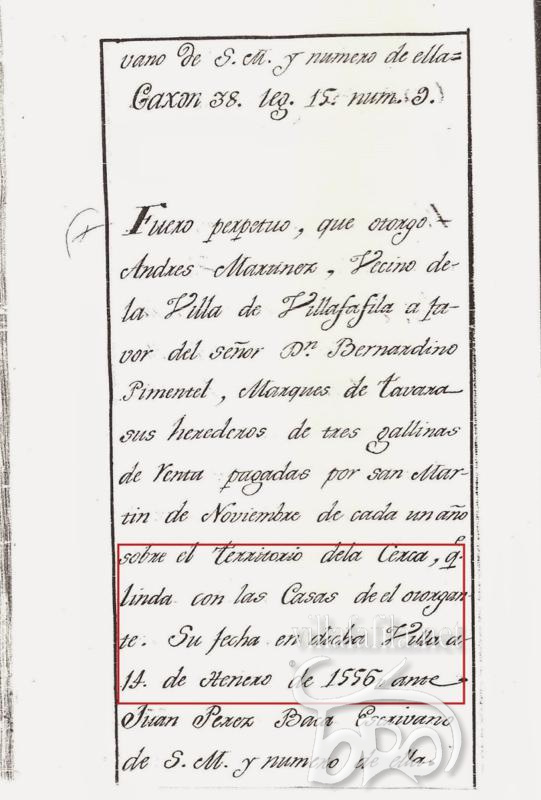 vano de S. M. y numero de ella=
Caxon 38. leg. 15. num. 9.
Fuero perpetuo, que otorgo
Andres Martinez, Vecino de
la Villa de Villafafila a fa-
vor del señor Dn. Bernardino
Pimentel, Marques de Tavara
sus herederos de tres gallinas
de Renta pagadas por san Mar-
tin de Noviembre de cada un año
sobre el territorio dela Cerca, q.e
linda con las Casas de el otorgan-
te. Su fecha en dicha Villa a
14. de Henero de 1556. ante
Juan Perez Baca Escrivano
de S. M. y numero de ella.
villafafila.net